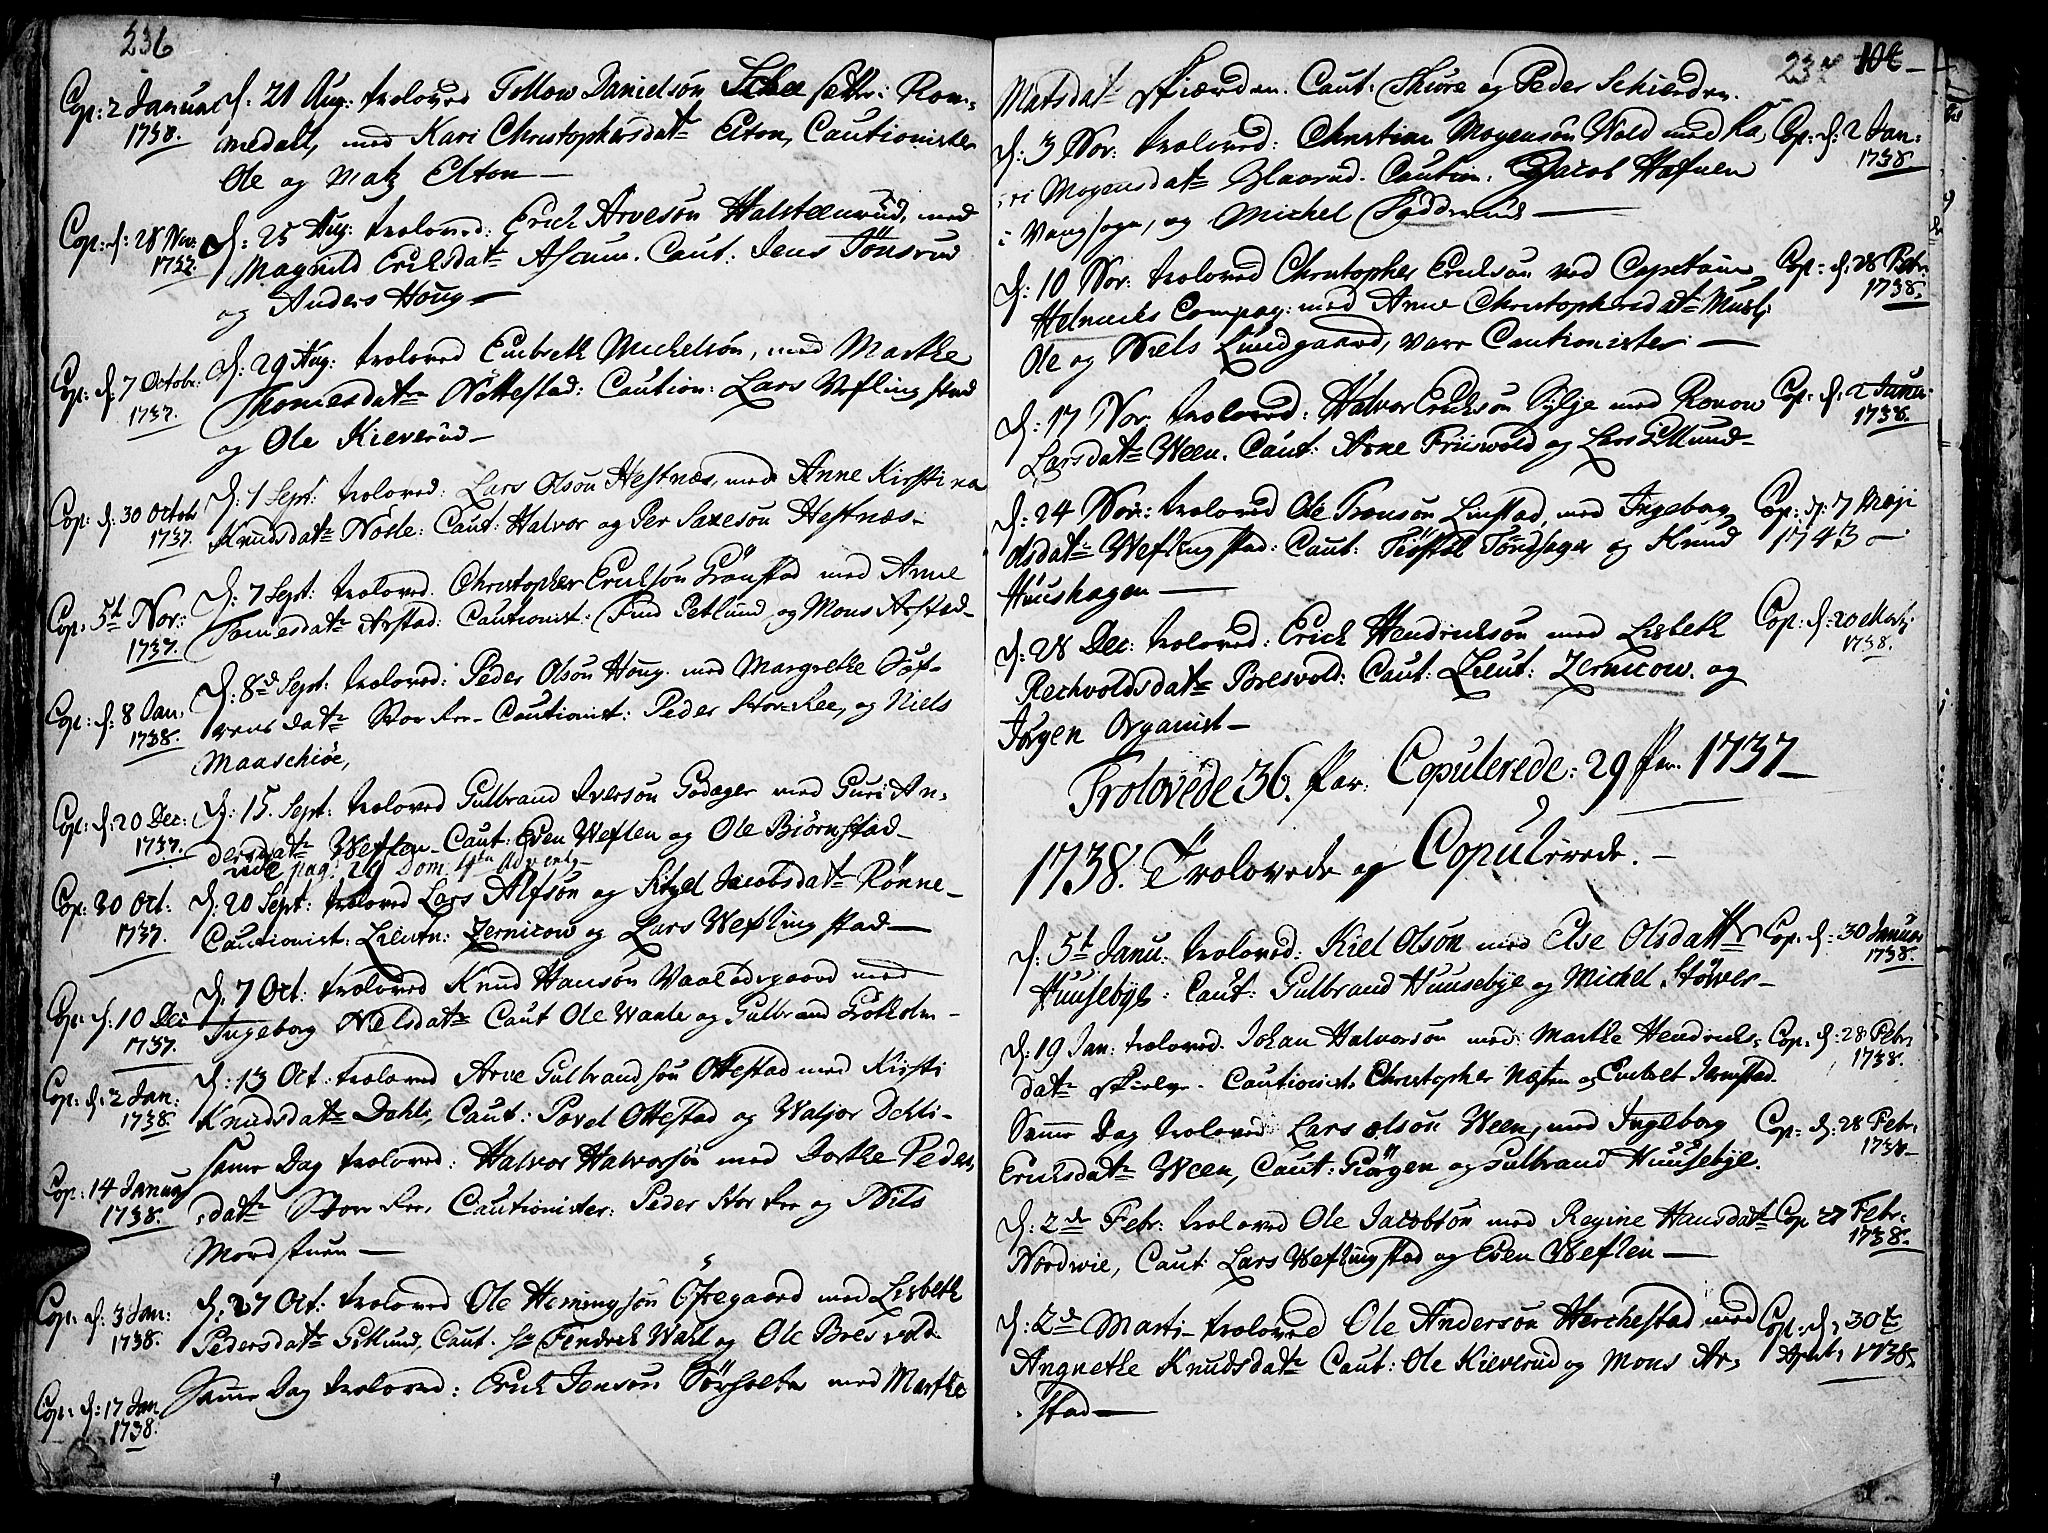 236
Cop: 2 Januar
1738.
d. 21 Aug: troloved Tollow Danielsön Schee sætter: Rom:
medall, med Kari Christophersdatr Elton, Cautionister
Ole og Matz Elton —
Cop: d: 28 Nov:
1737.
d: 25 Aug: troloved: Erich Arvesön Halsteenrud, med
Magnild Erichsdatr Ascum. Caut: Jens Tönsrud
og Anders Houg —
Cop: d: 7 Octobr:
1737.
d: 29 Aug: troloved Embreth Michelsön, med Marthe
Thomesdatr Nöttestad: Caution: Lars Weflingstad
og Ole Kieverud —
Cop: d: 30 Octob:
1737.
d: 1 Sept: troloved: Lars Olsön Hestnæs, med Anne Kirstina
Knudsdatr Nökle: Caut: Halvor og Per Saxesön Hestnæs -
Cop: 5t Nor:
1737.
d: 7 Sept: troloved. Christopher Erichsön Grönstad med Anne
Tomesdatr Arstad: Cautionist: Find Petlund og Mons Arstad -
Cop: d: 8 Jan:
1738.
d: 8de Sept: troloved: Peder Olsön Houg. med Margrethe Söf-
rens datr Stor Ree - Cautionist: Peder Stor-Ree, og Niels
Maaschiöe,
Cop: d: 20 Dec:
1737.
d: 15. Sept: troloved Gulbrand Iversön Godager med Guri An-
dersdatr Weflen - Caut: Even Weflen og Ole Biörnstad -
vide pag: 21 Dom. 4ta Advent -
Cop: 30 Oct:
1737.
d: 20 Sept: troloved Lars Alfsön og Sitzel Jacobsdatr Rönne -
Cautionist: Lieutn: Zernicow og Lars Weflingstad —
Cop: d: 10 Dec
1737.
d. 7 Oct: troloved Knud Hansön Vaaledegaard med
Ingeborg Nielsdatr Caut Ole Waale og Gulbrand Götholm -
Cop: d: 2 Jan:
1738.
d: 13 Oct: troloved Arve Gulbrandsön Ottestad med Kirsti
Knudsdatr Dahli, Caut: Povel Ottestad og Halvor Dehli -
Cop: 14 Januar
1738.
samme Dag troloved: Halvor Halvorsön med Dorthe Peders
datr Stor Ree, Cautionister: Peder Stor Ree og Nils
Mordstuen —
Cop: d: 3 Jan:
1738.
d: 27 Oct: troloved Ole Hemingsön Östregaard med Lisbeth
Pedersdatr Gitlund, Caut. Sr Fendrek Wahl og Ole Bresvold
Cop: d: 17 Jan
1738.
Samme Dag troloved: Erich Jensön Sörholte med Marthe
237 108
Matsdatr Skiærden. Caut: Skure og Peder Schierden.
d: 3 Nor: troloved: Christian Mogensön Wold med Ka-
ri Mogensdatr Blaarud. Caution: Jacob Hafnen
i Wangsogn, og Michel Sydderud —
Cop: d: 2 Jan:
1738.
d: 10 Nor: troloved Christopher Erichsön ved Capitain
Helmichs Compag: med Anne Christophersdatr Musli
Ole og Niels Lundgaard, vare Cautionister: —
Cop: d: 28 Febr:
1738.
d: 17 Nor: troloved: Halvor Erichsön Sylje med Ronou
Larsdatr Ween. Caut: Arne Friisvold og Lars Gillund -
Cop: d: 2 Janu:
1738.
d: 24 Nor: troloved Ole Tronsön Linstad, med Ingeborg
olsdatr Weflingstad: Caut: Tiöstel Töndsager og Knud
Huushagen —
Cop: d: 7 Maji
1743 —
d: 28 Dec: troloved: Erich Hendrichsön med Lisbeth
Rechvoldsdatr Bresvold: Caut: Lieut: Zernicow. og
Jörgen Organist -
Cop: d: 20 Martz
1738.
Trolovede 36. Par: Copulerede: 29 Par. 1737 —
1738. Trolovede og Copulerede. —
d: 5t Janu: troloved: Kiel Olsön med Else Olsdattr
Huusebye: Caut: Gulbrand Huusebye og Michel Stöwer -
Cop: d: 30 Januar
1738.
d: 19 Jan: troloved. Johan Halvorsön med Marthe Hendrichs-
datr Skielve - Cautionist: Christopher Næsten og Embret Jemstad.
Cop: d: 28 Febr:
1738.
Samme Dag troloved: Lars olsön Ween, med Ingeborg
Erichsdatr Ween, Caut: Görgen og Gulbrand Huusebye.
Cop: d: 28 Febr:
1738 -
d: 2de Febr: troloved Ole Jacobsön med Regine Hansdatr
Nordwie, Caut Lars Weflingstad og Even Weflen —
Cop 27 Febr:
1738.
d: 2de Marti - troloved Ole Andersön Herchestad med
Angnethe Knudsdatr Caut: Ole Kieverud og Mons Ar-
stad —
Cop: d: 30te
April 1738.